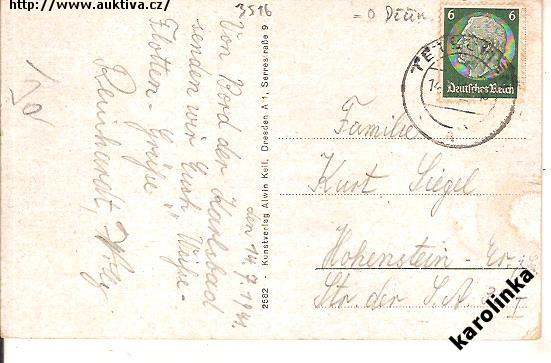 http://www.auktiva.cz/
3516
= O Děčín
6 6
Deutsches Reich
TETSCHEN
den 14.7.1941.
Von Bord der Karlsbad
senden wir Euch
Flotten-Grüße
Reinhardt, Willy
2582 · Kunstverlag Alwin Keil, Dresden A 1, Serrestraße 9
Familie
Kurt Siegel
Hohenstein-Er.
Str. der S.A.
karolinka